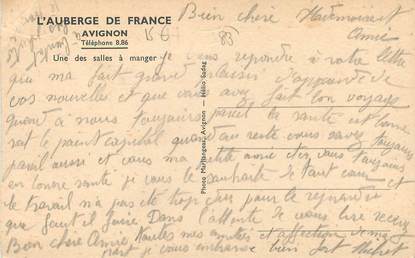 L'AUBERGE DE FRANCE
AVIGNON
Téléphone 8.86
Une des salles à manger
Photo Martignac, Avignon — Hélio Sadag
83
Bien chère Mademoiselle
Annie
je vous repondre à votre lettre
que ma fait grand plaisir d'apprendre de
vos nouvelles et que vous avez fait bon voyage
quand à nous toujours pareil la santé est bonne
sait le parent capital quand au reste vous savez toujours
pareil aussi et vous ma petite amie êtes vous toujours
en bonne santé je vous le souhaite de tout cœur et
le travail n'a pas été trop dur pour le reprendre
que faut il faire Dans l'attente de vous lire recevez
Bon chère Annie toutes mes amitiés et affection de ma
part je vous embrasse bien fort